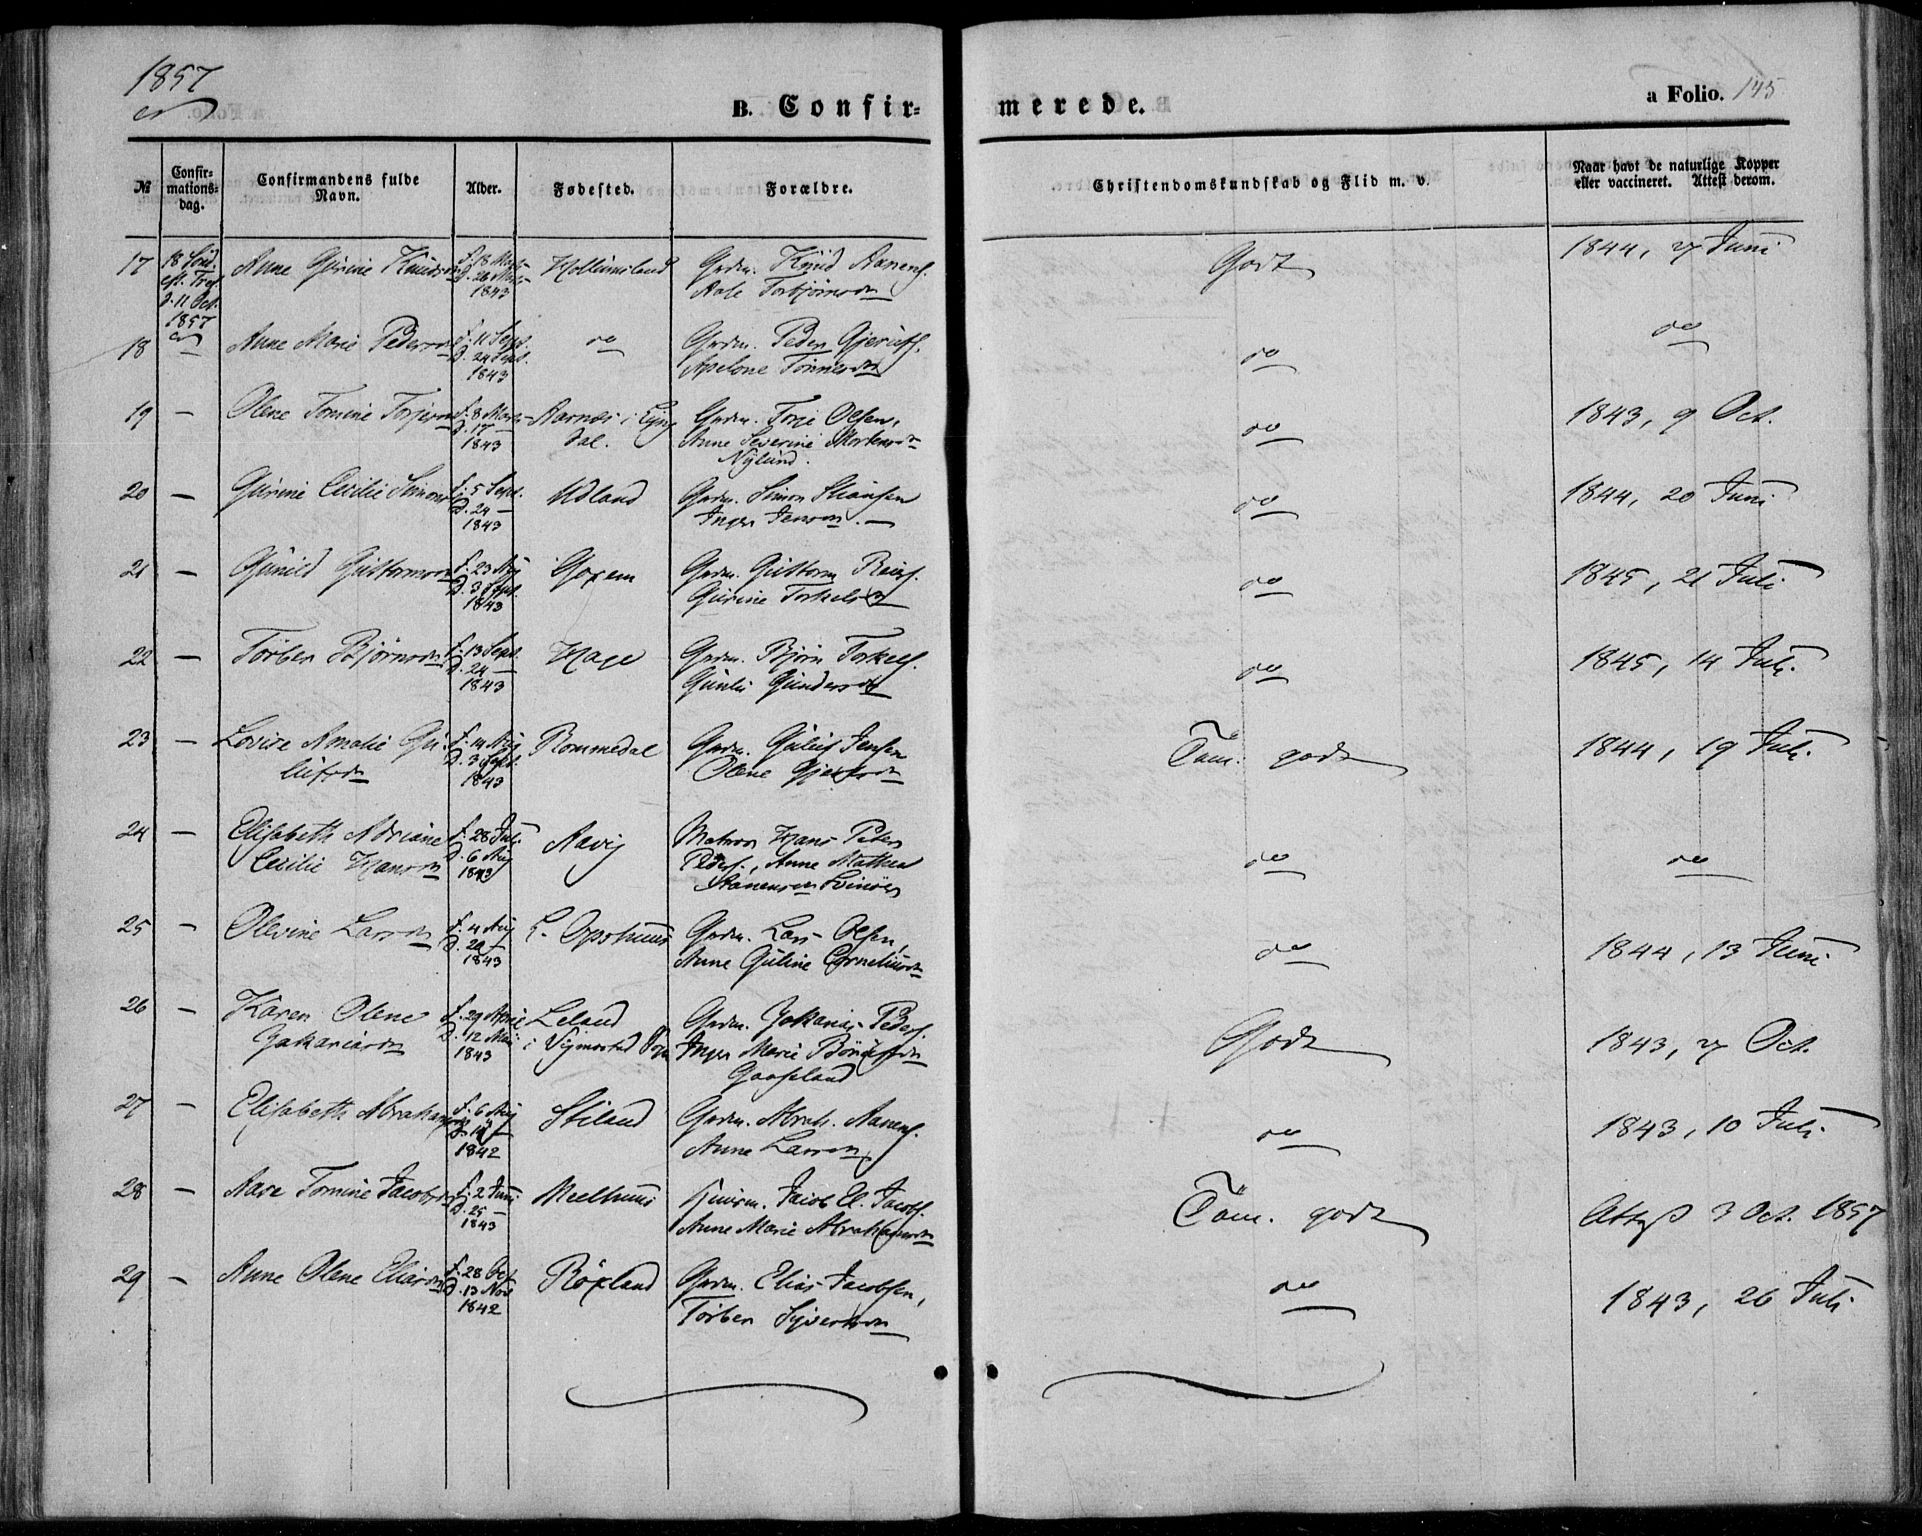 1857
B. Confir-
merede.
a Folio. 145
№
Confir-
mations-
dag.
Confirmandens fulde
Navn.
Alder.
Fødested.
Forældre.
Christendomskundskab og Flid m. v.
Naar havt de naturlige Kopper
eller vaccineret. Attest derom.
17 18 Sönd. eft. Tref. d. 11 Oct. 1857 Anne Gurine Knudsdr f. 18 Marts D. 26 Marts 1843 Hollumsland Grdm. Knud Aanens. Aase Torbjørnsdr Godt 1844, 7 Juni
18 — Anne Marie Pedersdr f. 11 Sept. D. 24 Sept. 1843 do Grdm. Peder Gjeruls. Apelone Tønnesdr do do
19 — Olene Tomine Torjesdr f. 8 Marts D. 17 — 1843 Aarnæs i Lyng dal. Grdm. Torje Olsen, Anne Severine Mortensdr Nylund. do 1843, 9 Oct.
20 — Gurine Cecilie Simonsdr f. 5 Sept. D. 24 — 1843 Udland Grdm. Simon Stiansen Inger Jensdr. — do 1844, 20 Juni
21 — Gunild Guttormsdr f. 23 Aug D. 3 Sept. 1843 Goxem Grdm. Guttorm Reiers. Gurine Torkelsdr do 1845, 21 Juli
22 — Torber Bjørnsdr f. 13 Sept. D. 24 — 1843 Hage Grdm. Bjørn Torkels. Gunle Gundersdr do 1845, 14 Juli
23 — Lovise Amalie Gu- lufsdr f. 14 Aug D. 3 Sept. 1843 Rommedal Grdm. Guluf Jensen Olene Gjertsdr Tem. godt 1844, 19 Juli
24 — Elisabeth Adriane Cecilie Hansdr f. 28 Juli D. 6 Aug 1843 Aavig Matros Hans Peter Peders., Anne Mathea Svinöer do do
25 — Olevine Larsdr f. 4 Aug D. 20 — 1843 L. Opshuus Grdm. Lars Olsen, Anne Guline Corneliusdr do 1844, 13 Juni
26 — Karen Olene Zakariasdr f. 29 April D. 12 Mai 1843 Leland i Vigmostad Sogn Grdm. Zakarias Peders. Inger Marie Gaaseland Godt 1843, 7 Oct.
27 — Elisabeth Abrahamsdr f. 6 Aug D. 14 — 1842 Stiland Grdm. Abrah. Aanens. Anne Larsdr do 1843, 10 Juli
28 — Aase Tomine Jacobsdr f. 2 Juni D. 25 — 1843 Meelhuus Huusm. Jacob El. Jacobs. Anne Marie Abrahamsdr Tem. godt Attest 3 Oct. 1857
29 — Anne Olene Eliasdr f. 28 Oct D. 13 Nov 1842 Røxland Grdm. Elias Jacobsen, Torber Syvertsdr do 1843, 26 Juli